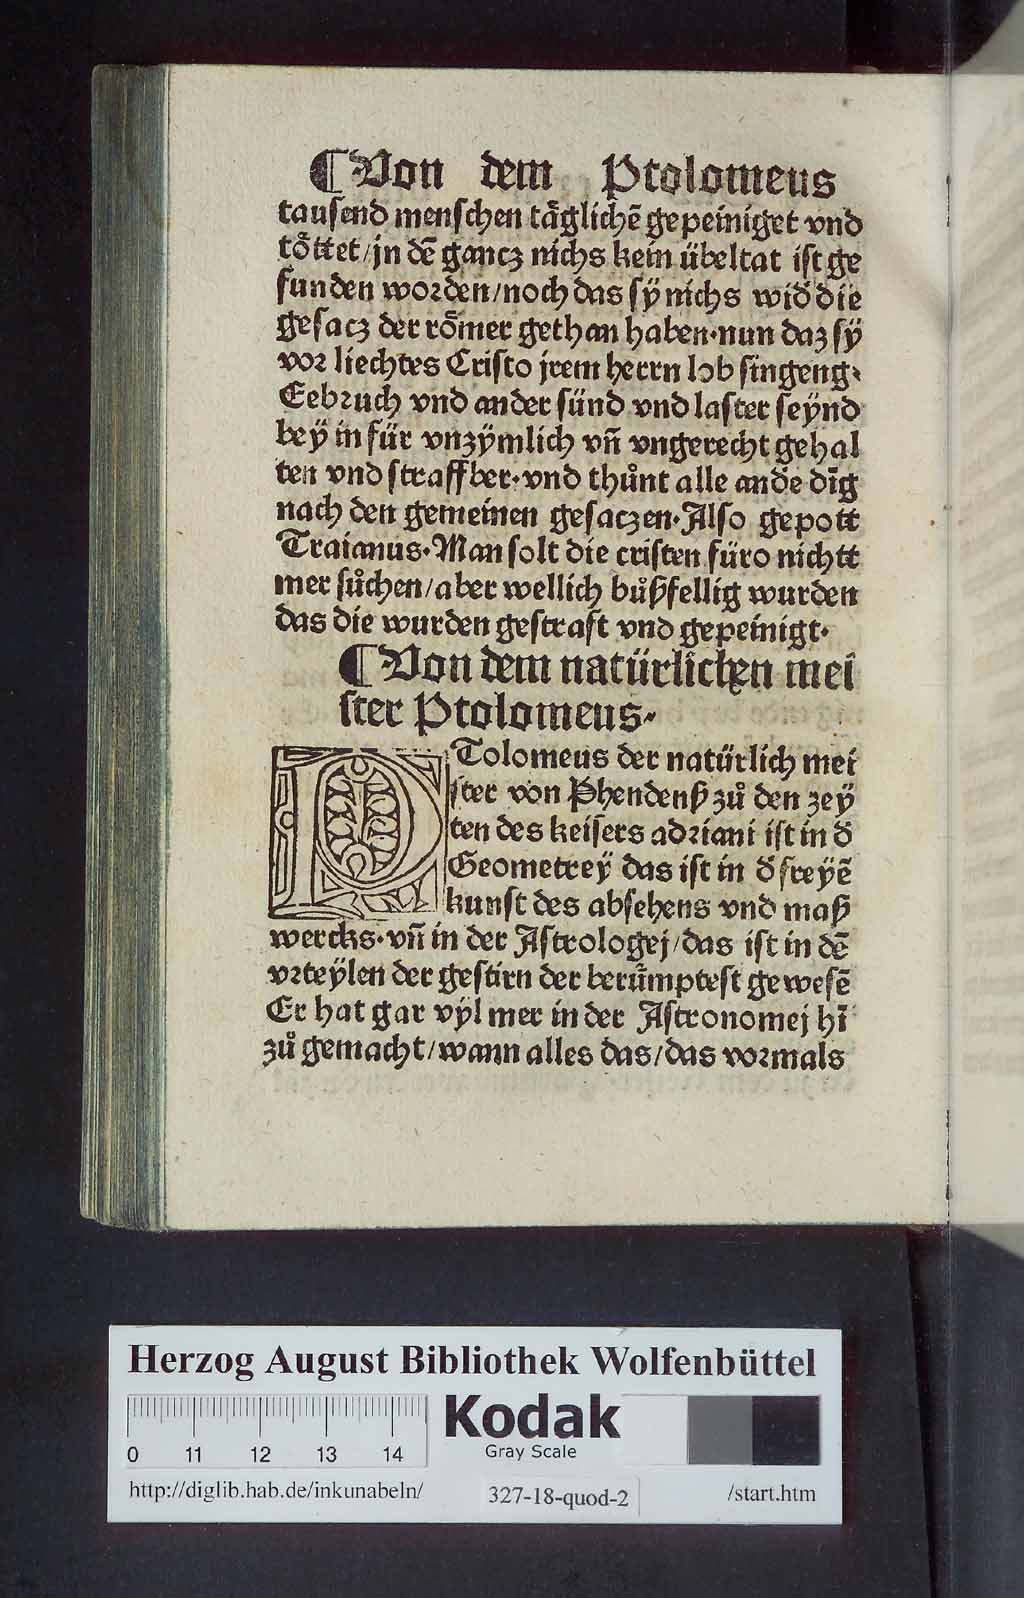 ¶Von dem Ptolomeus
tausend menschen tåglichē gepeiniget vnd
tȯttet/in dē gancz nichs kein übeltat ist ge
funden worden/noch das sÿ nichs wid̄ die
gesacz der rȯmer gethan haben·nun daz sÿ
vor liechtes Cristo jrem herrn lob singeng·
Eebruch vnd ander sünd vnd laster seÿnd
beÿ in für vnzÿmlich vn̄ vngerecht gehal
ten vnd straffber·vnd thůnt alle and̄e dīg
nach den gemeinen gesaczen·Also gepott
Traianus·Man solt die cristen füro nichtt
mer sůchen/aber wellich bůßfellig wurden
das die wurden gestraft vnd gepeinigt·
¶Von dem natürlichen mei
ster Ptolomeus·
PTolomeus der natürlich mei
ster von Phendenß zů den zeÿ
ten des keisers adriani ist in d̄
Geometreÿ das ist in d̄ freÿē
kunst des absehens vnd maß
wercks·vn̄ in der Astrologej/das ist in dē
vrteÿlen der gestirn der berümptest gewesē
Er hat gar vÿl mer in der Astronomej hī
zů gemacht/wann alles das/das vormals
Herzog August Bibliothek Wolfenbüttel
0 11 12 13 14
Kodak
Gray Scale
http://diglib.hab.de/inkunabeln/ 327-18-quod-2 /start.htm